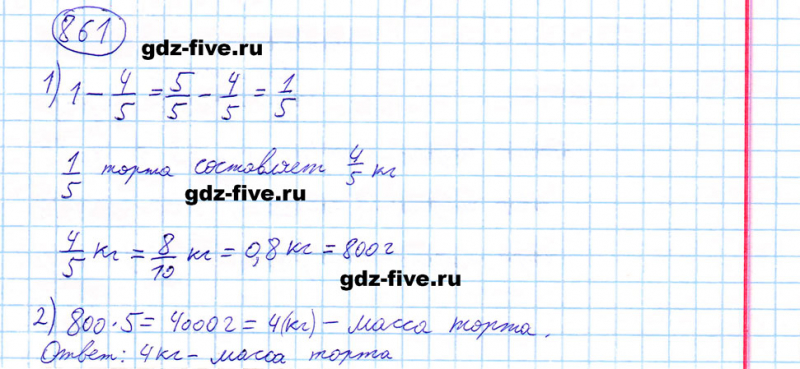 861
gdz-five.ru
1) 1 - 4/5 = 5/5 - 4/5 = 1/5
1/5 торта составляет 4/5 кг
gdz-five.ru
4/5 кг = 8/10 кг = 0,8 кг = 800 г
gdz-five.ru
2) 800 · 5 = 4000 г = 4 (кг) - масса торта.
Ответ: 4 кг - масса торта